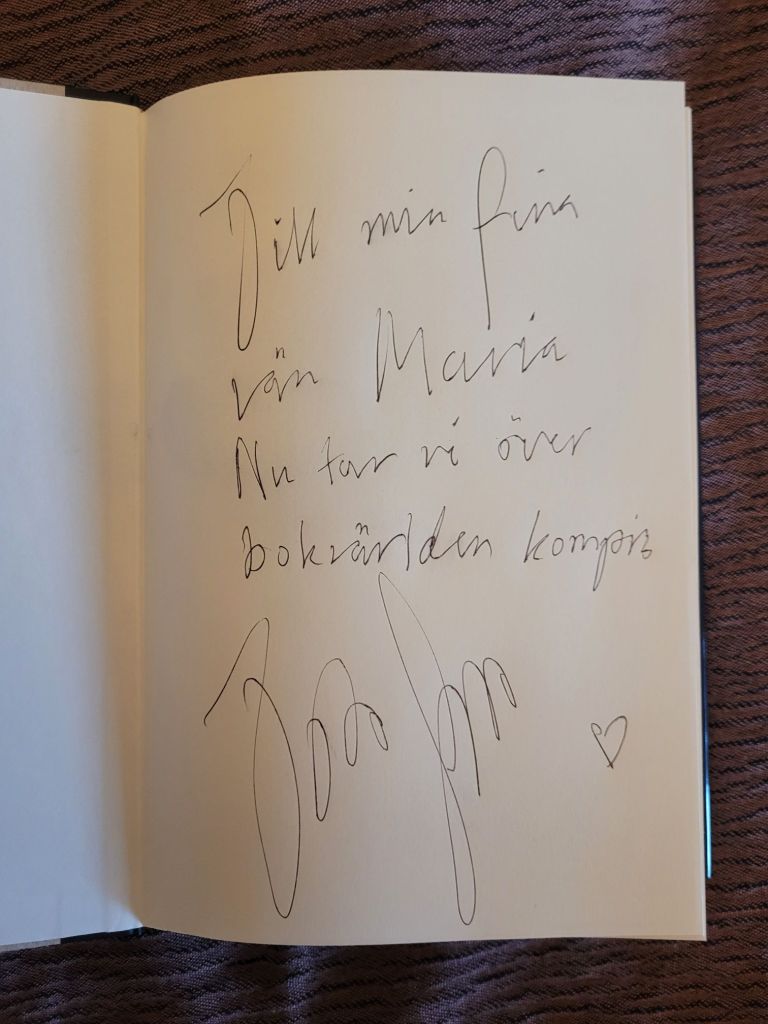 Till min fina
vän Maria
Nu tar vi över
bokvärlden kompis